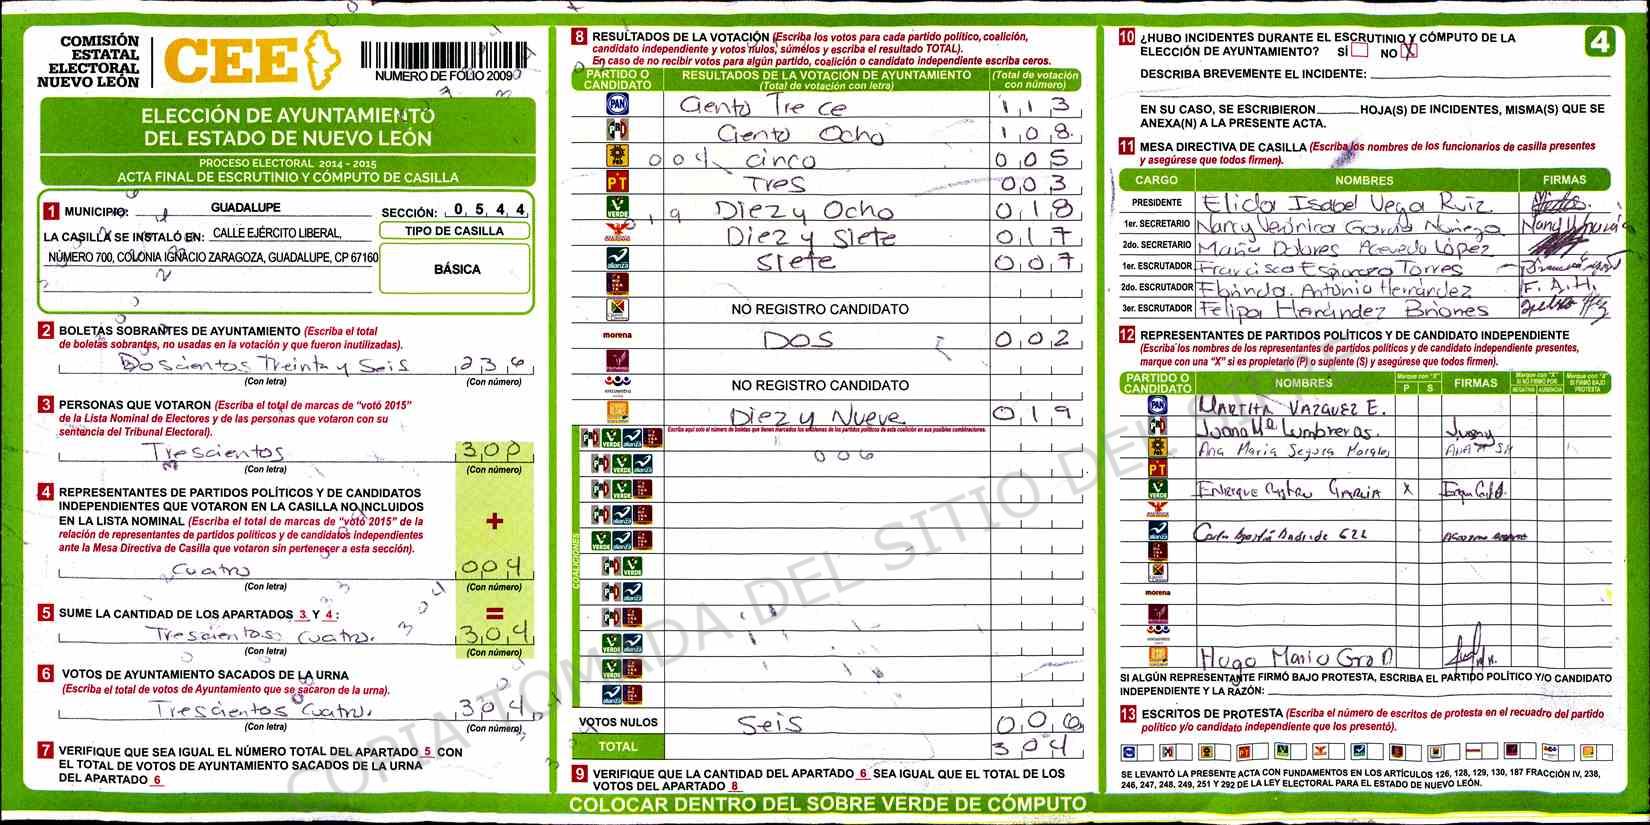 COMISIÓN
ESTATAL
ELECTORAL
NUEVO LEÓN
CEE
NUMERO DE FOLIO 20090
ELECCIÓN DE AYUNTAMIENTO
DEL ESTADO DE NUEVO LEÓN
PROCESO ELECTORAL 2014 - 2015
ACTA FINAL DE ESCRUTINIO Y CÓMPUTO DE CASILLA
1 MUNICIPIO: GUADALUPE SECCIÓN: 0 5 4 4
LA CASILLA SE INSTALÓ EN: CALLE EJÉRCITO LIBERAL,
NÚMERO 700, COLONIA IGNACIO ZARAGOZA, GUADALUPE, CP 67160
TIPO DE CASILLA
BÁSICA
2 BOLETAS SOBRANTES DE AYUNTAMIENTO (Escriba el total
de boletas sobrantes, no usadas en la votación y que fueron inutilizadas).
Doscientos Treinta y Seis 236
(Con letra) (Con número)
3 PERSONAS QUE VOTARON (Escriba el total de marcas de "votó 2015"
de la Lista Nominal de Electores y de las personas que votaron con su
sentencia del Tribunal Electoral).
Trescientos 300
(Con letra) (Con número)
4 REPRESENTANTES DE PARTIDOS POLÍTICOS Y DE CANDIDATOS
INDEPENDIENTES QUE VOTARON EN LA CASILLA NO INCLUIDOS
EN LA LISTA NOMINAL (Escriba el total de marcas de "votó 2015" de la
relación de representantes de partidos políticos y de candidatos independientes
ante la Mesa Directiva de Casilla que votaron sin pertenecer a esta sección).
+
Cuatro 004
(Con letra) (Con número)
5 SUME LA CANTIDAD DE LOS APARTADOS 3 Y 4 : =
Trescientos Cuatro. 304
(Con letra) (Con número)
6 VOTOS DE AYUNTAMIENTO SACADOS DE LA URNA
(Escriba el total de votos de Ayuntamiento que se sacaron de la urna).
Trescientos Cuatro. 304
(Con letra) (Con número)
7 VERIFIQUE QUE SEA IGUAL EL NÚMERO TOTAL DEL APARTADO 5 CON
EL TOTAL DE VOTOS DE AYUNTAMIENTO SACADOS DE LA URNA
DEL APARTADO 6
8 RESULTADOS DE LA VOTACIÓN (Escriba los votos para cada partido político, coalición,
candidato independiente y votos nulos, súmelos y escriba el resultado TOTAL).
En caso de no recibir votos para algún partido, coalición o candidato independiente escriba ceros.
PARTIDO O CANDIDATO
RESULTADOS DE LA VOTACIÓN DE AYUNTAMIENTO
(Total de votación con letra)
(Total de votación con número)
PAN Ciento Trece 113
PRI Ciento Ocho 108
PRD 004 cinco 005
PT Tres 003
VERDE 019 Diez y Ocho 018
Diez y Siete 017
alianza Siete 007
NO REGISTRO CANDIDATO
morena DOS 002
encuentro NO REGISTRO CANDIDATO
Diez y Nueve 019
Escriba aquí solo el número de boletas que tienen marcados los emblemas de los partidos políticos de esta coalición en sus posibles combinaciones.
006
COALICIONES
VOTOS NULOS Seis 006
TOTAL 304
9 VERIFIQUE QUE LA CANTIDAD DEL APARTADO 6 SEA IGUAL QUE EL TOTAL DE LOS
VOTOS DEL APARTADO 8
COLOCAR DENTRO DEL SOBRE VERDE DE CÓMPUTO
10 ¿HUBO INCIDENTES DURANTE EL ESCRUTINIO Y CÓMPUTO DE LA
ELECCIÓN DE AYUNTAMIENTO? SÍ NO X
4
DESCRIBA BREVEMENTE EL INCIDENTE:
EN SU CASO, SE ESCRIBIERON HOJA(S) DE INCIDENTES, MISMA(S) QUE SE
ANEXA(N) A LA PRESENTE ACTA.
11 MESA DIRECTIVA DE CASILLA (Escriba los nombres de los funcionarios de casilla presentes
y asegúrese que todos firmen).
CARGO NOMBRES FIRMAS
PRESIDENTE Elida Isabel Vega Ruiz.
1er. SECRETARIO Nancy Verónica García Núñega
2do. SECRETARIO María Dolores Acevedo López
1er. ESCRUTADOR Francisco Esparza Torres
2do. ESCRUTADOR Antonia Hernández F. A. H.
3er. ESCRUTADOR Felipa Hernández Briones
12 REPRESENTANTES DE PARTIDOS POLÍTICOS Y DE CANDIDATO INDEPENDIENTE
(Escriba los nombres de los representantes de partidos políticos y de candidato independiente presentes,
marque con una "X" si es propietario (P) o suplente (S) y asegúrese que todos firmen).
PARTIDO O CANDIDATO NOMBRES P S FIRMAS
PAN MARTHA VAZQUEZ E.
PRI Juana Ma Lumbreras. Juany
PRD Ana Maria Segura Morales
PT
VERDE ENRIQUE CASTRO GARCIA X
alianza
morena
Hugo Mario
SI ALGÚN REPRESENTANTE FIRMÓ BAJO PROTESTA, ESCRIBA EL PARTIDO POLÍTICO Y/O CANDIDATO
INDEPENDIENTE Y LA RAZÓN:
13 ESCRITOS DE PROTESTA (Escriba el número de escritos de protesta en el recuadro del partido
político y/o candidato independiente que los presentó).
SE LEVANTÓ LA PRESENTE ACTA CON FUNDAMENTOS EN LOS ARTÍCULOS 126, 128, 129, 130, 187 FRACCIÓN IV, 238,
246, 247, 248, 249, 251 Y 292 DE LA LEY ELECTORAL PARA EL ESTADO DE NUEVO LEÓN.
COPIA TOMADA DEL SITIO DEL SIPRE